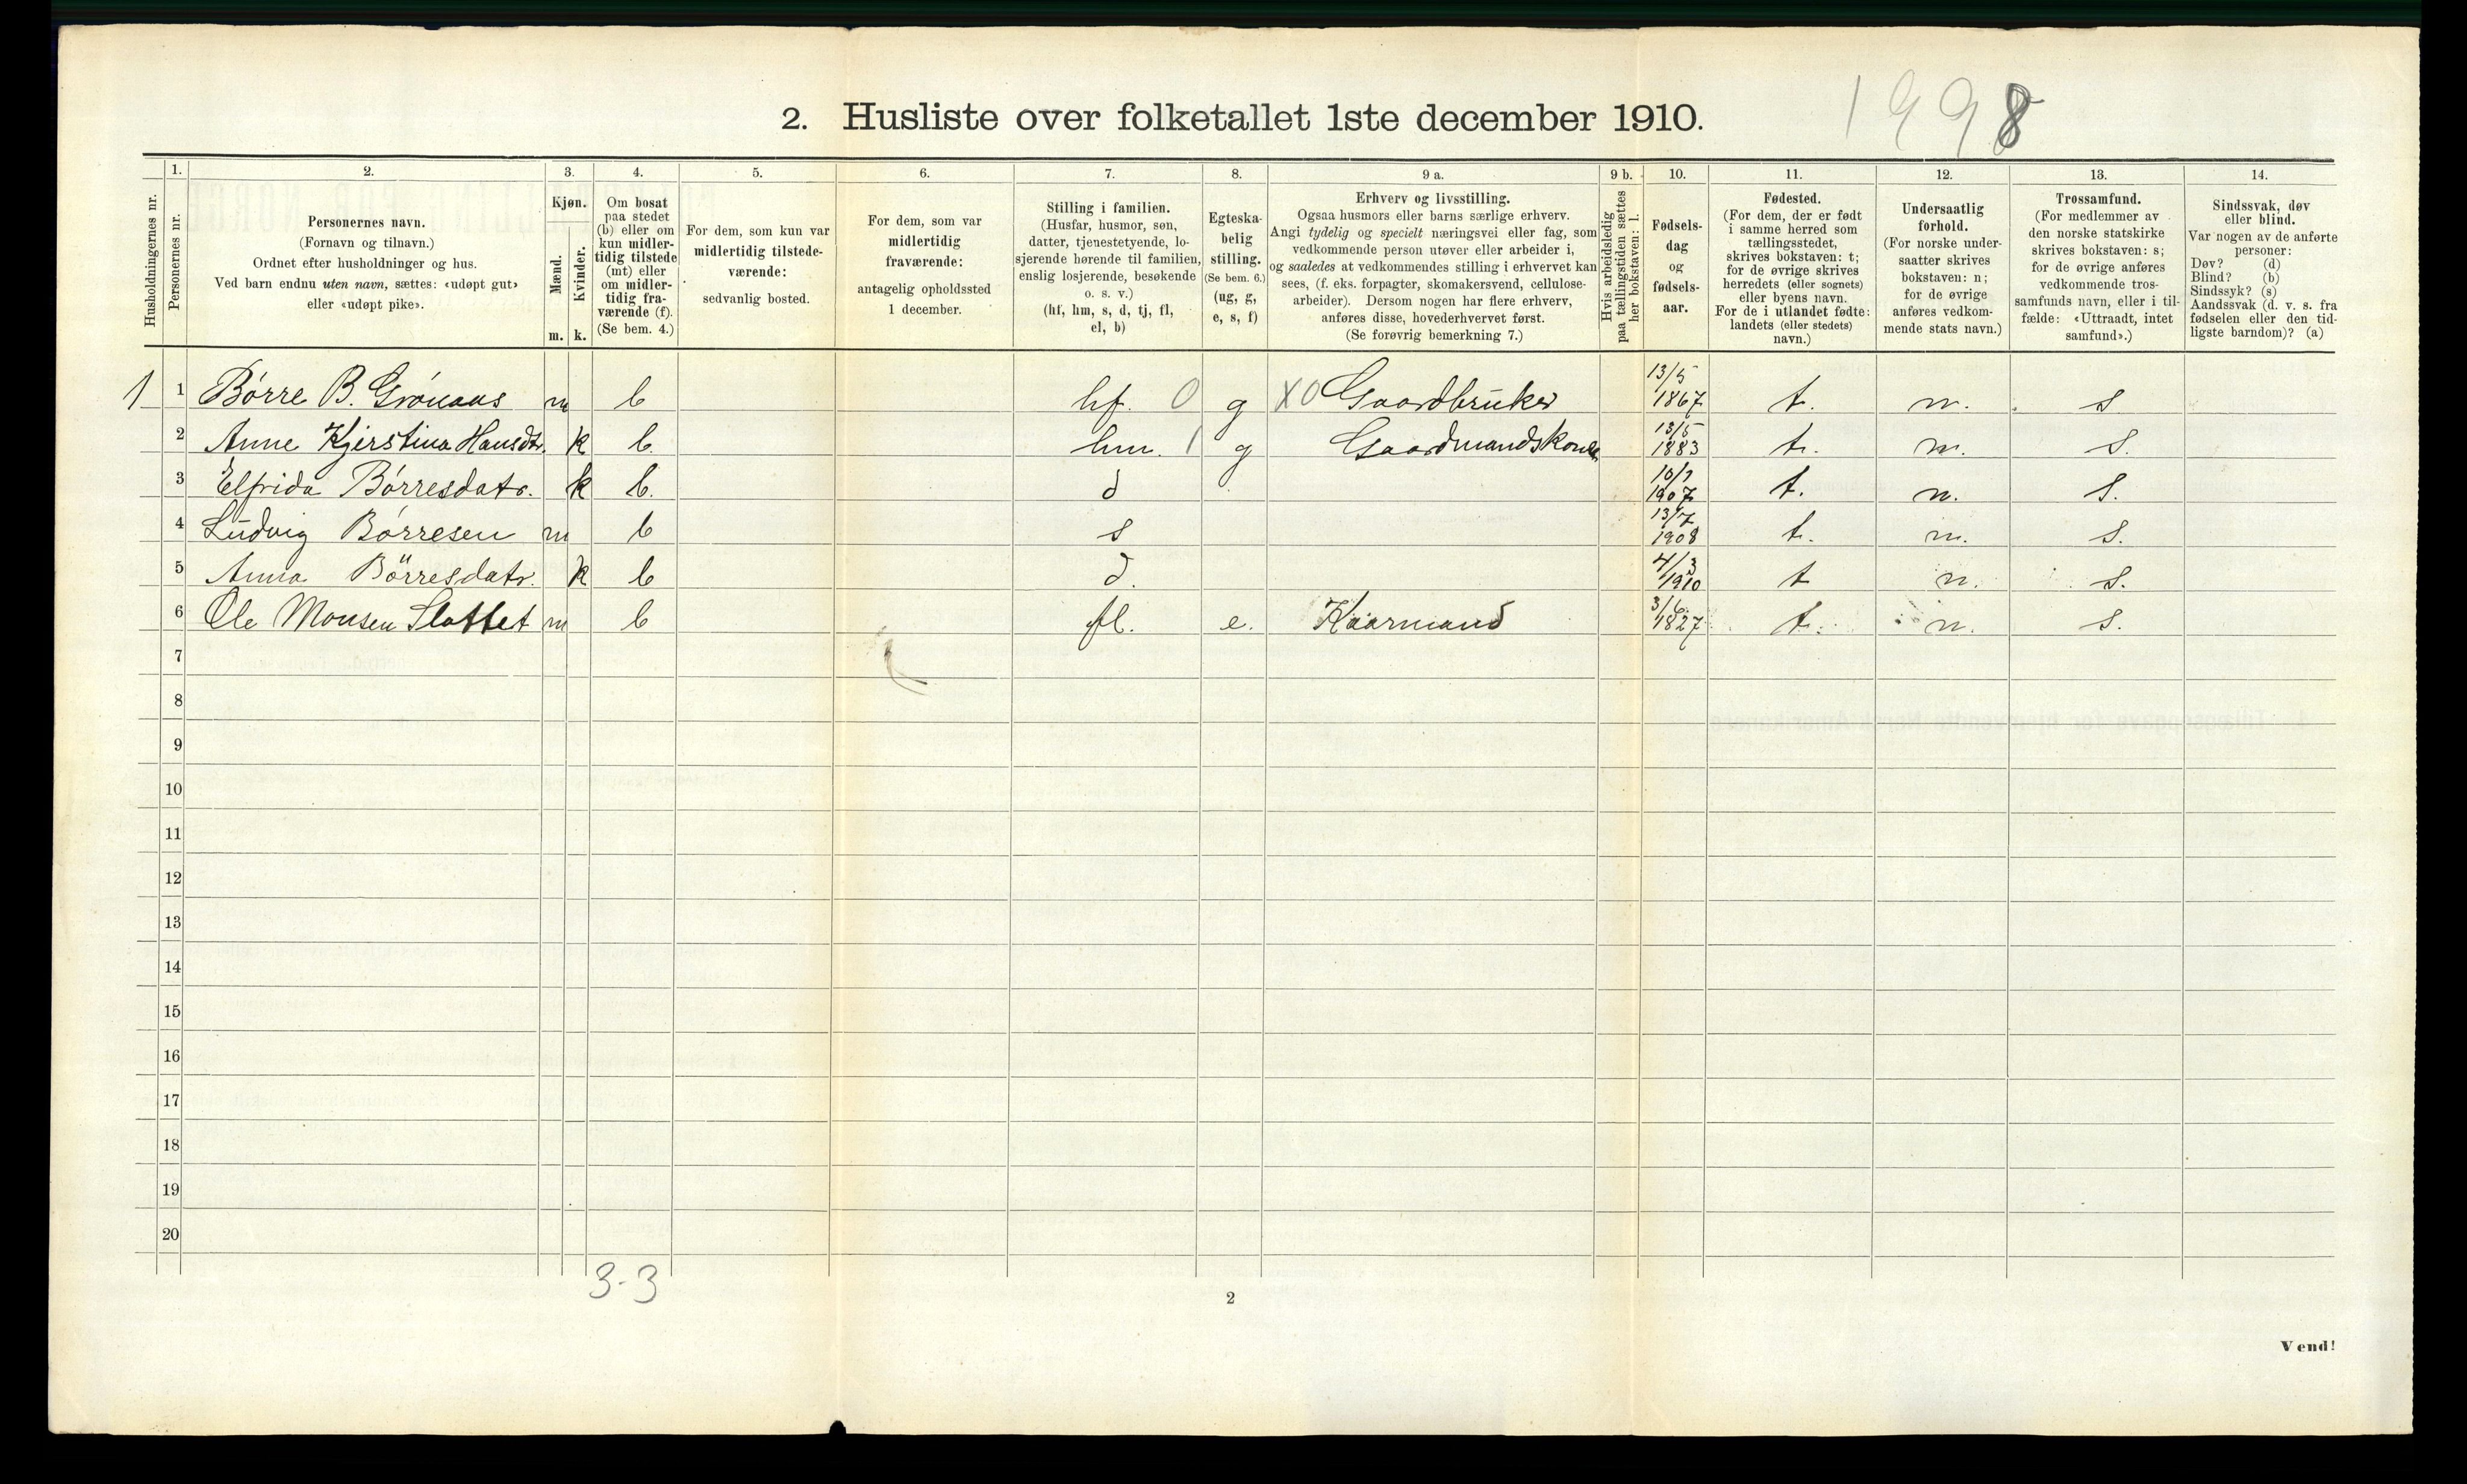 1998
2. Husliste over folketallet 1ste december 1910.
Husholdningernes nr.
1. Personernes nr.
2. Personernes navn.
(Fornavn og tilnavn.)
Ordnet efter husholdninger og hus.
Ved barn endnu uten navn, sættes: «udøpt gut»
eller «udøpt pike».
3. Kjøn.
Mænd. m.
Kvinder. k.
4. Om bosat
paa stedet
(b) eller om
kun midler-
tidig tilstede
(mt) eller
om midler-
tidig fra-
værende (f).
(Se bem. 4.)
5. For dem, som kun var
midlertidig tilstede-
værende:
sedvanlig bosted.
6. For dem, som var
midlertidig
fraværende:
antagelig opholdssted
1 december.
7. Stilling i familien.
(Husfar, husmor, søn,
datter, tjenestetyende, lo-
sjerende hørende til familien,
enslig losjerende, besøkende
o. s. v.)
(hf, hm, s, d, tj, fl,
el, b)
8. Egteska-
belig
stilling.
(Se bem. 6.)
(ug, g,
e, s, f)
9 a. Erhverv og livsstilling.
Ogsaa husmors eller barns særlige erhverv.
Angi tydelig og specielt næringsvei eller fag, som
vedkommende person utøver eller arbeider i,
og saaledes at vedkommendes stilling i erhvervet kan
sees, (f. eks. forpagter, skomakersvend, cellulose-
arbeider). Dersom nogen har flere erhverv,
anføres disse, hovederhvervet først.
(Se forøvrig bemerkning 7.)
9 b. Hvis arbeidsledig
paa tællingstiden sættes
her bokstaven: l.
10. Fødsels-
dag
og
fødsels-
aar.
11. Fødested.
(For dem, der er født
i samme herred som
tællingsstedet,
skrives bokstaven: t;
for de øvrige skrives
herredets (eller sognets)
eller byens navn.
For de i utlandet fødte:
landets (eller stedets)
navn.)
12. Undersaatlig
forhold.
(For norske under-
saatter skrives
bokstaven: n;
for de øvrige
anføres vedkom-
mende stats navn.)
13. Trossamfund.
(For medlemmer av
den norske statskirke
skrives bokstaven: s;
for de øvrige anføres
vedkommende tros-
samfunds navn, eller i til-
fælde: «Uttraadt, intet
samfund».)
14. Sindssvak, døv
eller blind.
Var nogen av de anførte
personer:
Døv? (d)
Blind? (b)
Sindssyk? (s)
Aandssvak (d. v. s. fra
fødselen eller den tid-
ligste barndom)? (a)
1 1 Børre B. Grönaas m b hf. 0 g X0 Gaardbruker 13/5 1867 t. n. s
2 Anne Kjerstina Hansdtr. k b. hm. 1 g Gaardmandskone 13/5 1883 t. n. s.
3 Elfrida Börresdatr. k b. d 10/7 1907 t. n. s.
4 Ludvig Börresen m b s 13/7 1908 t. n. s.
5 Anna Börresdatr. k b d. 4/3 1910 t n. s.
6 Ole Monsen Slottet m b fl. e. Kaarmand 3/6 1827 t. n. s.
7
8
9
10
11
12
13
14
15
16
17
18
19
20
3-3
2
Vend!